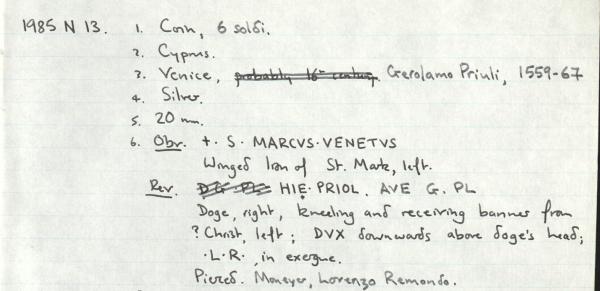 1985 N 13. 1. Coin, 6 soldi.
2. Cyprus.
3. Venice, probably 16th century. Gerolamo Priuli, 1559-67
4. Silver.
5. 20 mm.
6. Obv. +. S. MARCVS. VENETVS
Winged lion of St. Mark, left.
Rev. HIE. PRIOL. AVE G. PL
Doge, right, kneeling and receiving banner from
? Christ, left; DVX downwards above doge's head;
·L·R·, in exergue.
Pierced. Moneyer, Lorenzo Remondo.